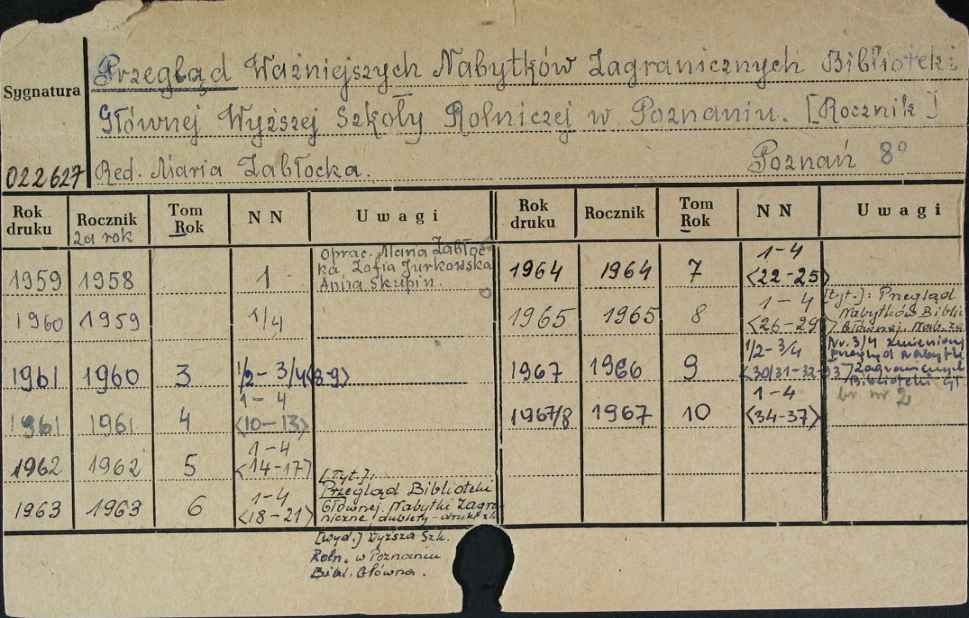 Przegląd Ważniejszych Nabytków Zagranicznych Biblioteki
Sygnatura
Głównej Wyższej Szkoły Rolniczej w Poznaniu. [Rocznik]
022627 Red. Maria Zabłocka. Poznań 8°
Rok druku Rocznik za rok Tom Rok NN Uwagi Rok druku Rocznik Tom Rok NN Uwagi
1959 1958 1 Oprac. Maria Zabłoc-
ka, Zofia Jurkowska
Anna Skupin.
1960 1959 1/4
1961 1960 3 1/2 - 3/4 <8-9>
1961 1961 4 1-4 <10-13>
1962 1962 5 1-4 <14-17>
1963 1963 6 1-4 <18-21>
[Tyt.]:
Przegląd Biblioteki
Głównej. Nabytki Zagra-
niczne
[Wyd.] Wyższa Szk.
Roln. w Poznaniu
Bibl. Główna.
1964 1964 7 1-4 <22-25>
1965 1965 8 1-4 <26-29>
[tyt.]: Przegląd
Nabytków Bibli
Głównej. Nab. Za
1967 1966 9 1/2 - 3/4 <30/31-32-33>
Nr. 3/4 zmieniony
Przegląd Nabytk
Zagranicznych
Biblioteki Gł
br nr 2
1967/8 1967 10 1-4 <34-37>